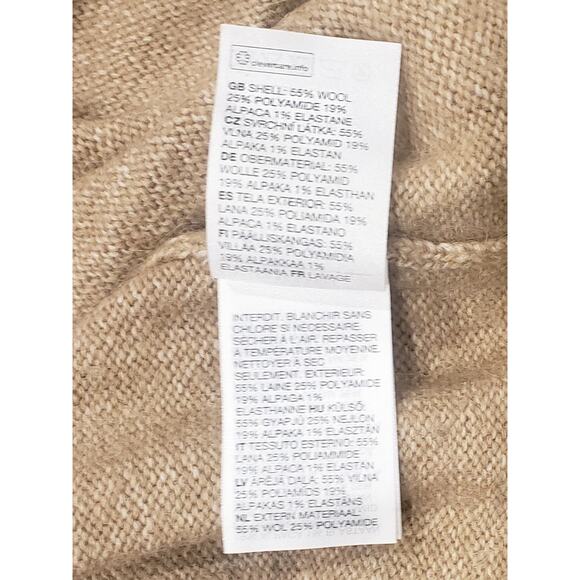 clevercare.info
GB SHELL: 55% WOOL
25% POLYAMIDE 19%
ALPACA 1% ELASTANE
CZ SVRCHNÍ LÁTKA: 55%
VLNA 25% POLYAMID 19%
ALPAKA 1% ELASTAN
DE OBERMATERIAL: 55%
WOLLE 25% POLYAMID
19% ALPAKA 1% ELASTHAN
ES TELA EXTERIOR: 55%
LANA 25% POLIAMIDA 19%
ALPACA 1% ELASTANO
FI PÄÄLLISKANGAS: 55%
VILLAA 25% POLYAMIDIA
19% ALPAKKAA 1%
ELASTAANIA FR LAVAGE
INTERDIT. BLANCHIR SANS
CHLORE SI NECESSAIRE.
SÉCHER À L'AIR. REPASSER
À TEMPÉRATURE MOYENNE.
NETTOYER À SEC
SEULEMENT. EXTERIEUR:
55% LAINE 25% POLYAMIDE
19% ALPAGA 1%
ELASTHANNE HU KÜLSŐ:
55% GYAPJÚ 25% NEJLON
19% ALPAKA 1% ELASZTÁN
IT TESSUTO ESTERNO: 55%
LANA 25% POLIAMMIDE
19% ALPACA 1% ELASTAN
LV ĀRĒJĀ DAĻA: 55% VILNA
25% POLIAMĪDS 19%
ALPAKAS 1% ELASTĀNS
NL EXTERN MATERIAAL:
55% WOL 25% POLYAMIDE